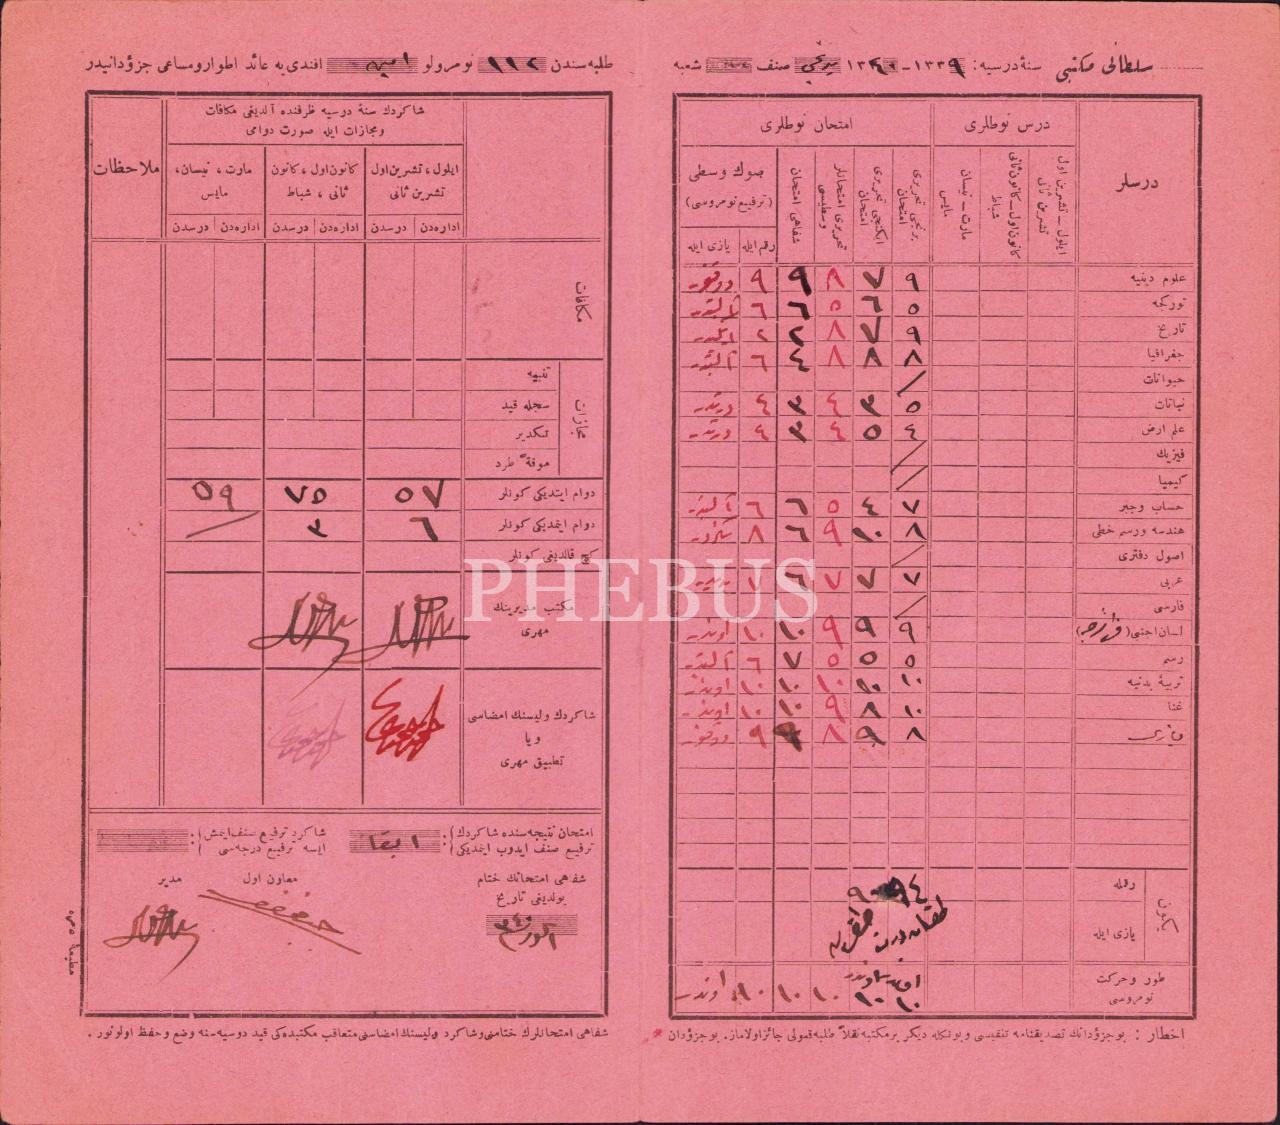 سلطانی مکتبی سنهٔ درسیه: ١٣٣٩ - ١٣٤٠ برنجی صنف شعبه
طلبه سندن ١١٢ نومرولو امین افندی یه عائد اطوار و مساعی جزؤدانیدر
درسلر
درس نوطلری
امتحان نوطلری
ایلول – تشرین اول تشرین ثانی
کانون اول – کانون ثانی شباط
مارت – نیسان مایس
برنجی تحریری امتحان
ایکنجی تحریری امتحان
تحریری امتحانلر وسطیسی
شفاهی امتحان
صوك وسطی
(ترفیع نومروسی)
رقم ایله
یازی ایله
علوم دینیه ٩ ٧ ٨ ٩ ٩
تورکجه ٥ ٦ ٥ ٦ ٦
تاریخ ٩ ٧ ٨ ٢ ٢
جغرافیا ٨ ٨ ٨ ٤ ٦
حیوانات
نباتات ٥ ٣ ٤ ٣ ٤ درتدر
علم ارض ٤ ٥ ٤ ٣ ٤ درتدر
فیزیك
کیمیا
حساب و جبر ٧ ٤ ٥ ٦ ٦
هندسه و رسم خطی ٨ ١٠ ٩ ٦ ٨
اصول دفتری
عربی ٧ ٧ ٧ ٦ ٧
فارسی
لسان اجنبی (فرانسزجه) ٩ ٩ ٩ ١٠ ١٠ اوندر
رسم ٥ ٥ ٥ ٧ ٦
تربیهٔ بدنیه ١٠ ١٠ ١٠ ١٠ ١٠ اوندر
غنا ١٠ ٨ ٩ ١٠ ١٠ اوندر
یازی ٨ ٩ ٨ ٩ ٩
یکون
رقمله ٩٤ ٩٠
یازی ایله
طور و حرکت نومروسی ١٠ ١٠ ١٠ ١٠ ١٠ اوندر
اخطار : بو جزؤدانك تصدیقنامه تنفیسی و بونکله دیکر بر مکتبه نقلاً طلبه قبولی جائز اولاماز. بو جزؤدان
شاکردك سنهٔ درسیه ظرفنده آلدیغی مکافات
و مجازات ایله صورت دوامی
ملاحظات
ایلول ، تشرین اول
تشرین ثانی
کانون اول ، کانون
ثانی ، شباط
مارت ، نیسان،
مایس
اداره دن درسدن اداره دن درسدن اداره دن درسدن
مکافات
مجازات
تنبیه
سجله قید
تکدیر
موقةً طرد
دوام ایتدیکی کونلر ٥٧ ٧٥ ٥٩
دوام ایتمدیکی کونلر ٦ ٣
کچ قالدیغی کونلر
مکتب مدیرینك
مهری
شاکردك ولیسنك امضاسی
و یا
تطبیق مهری
امتحان نتیجه سنده شاکردك
ترفیع صنف ایدوب ایتمدیکی : ابقا
شاکرد ترفیع صنف ایتمش
ایسه ترفیع درجه سی :
شفاهی امتحانك ختام
بولدیغی تاریخ
معاون اول
مدیر
شفاهی امتحانلرك ختامنی و شاکرد ولیسنك امضاسی متعاقب مکتبده کی قید دوسیه سنه وضع و حفظ اولونور .
PHEBUS